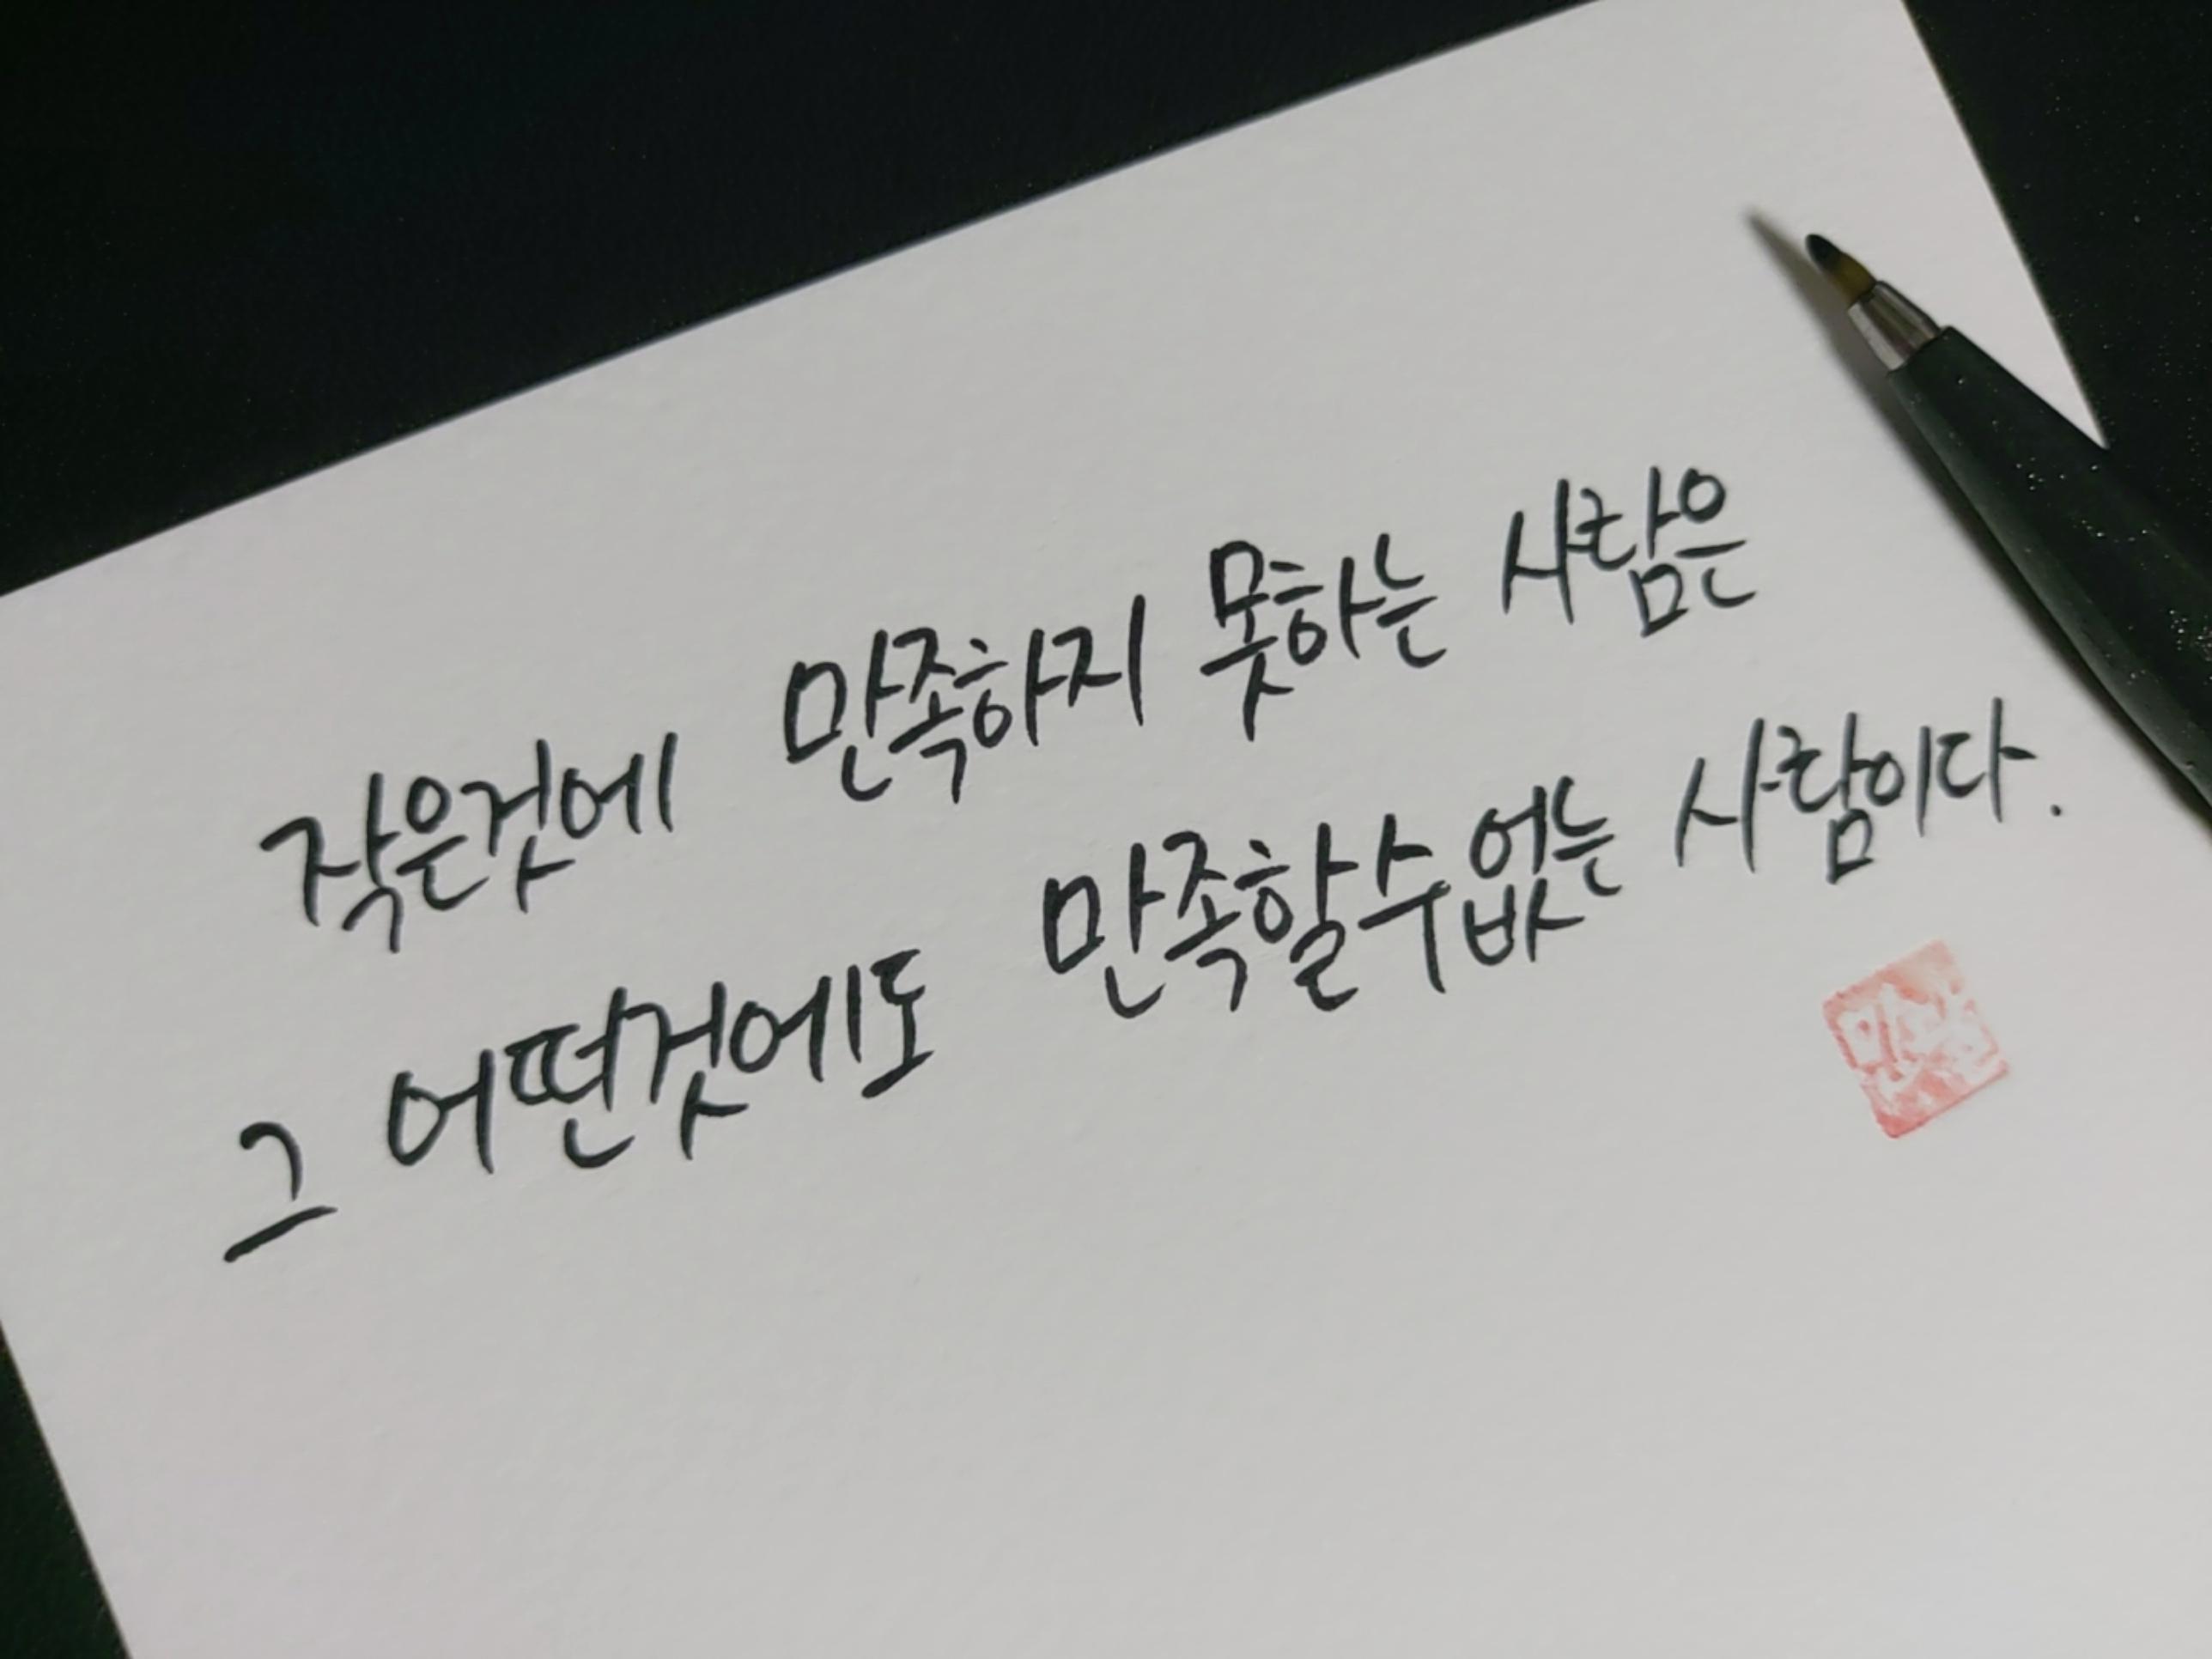 작은것에 만족하지 못하는 사람은
그 어떤것에도 만족할수없는 사람이다.